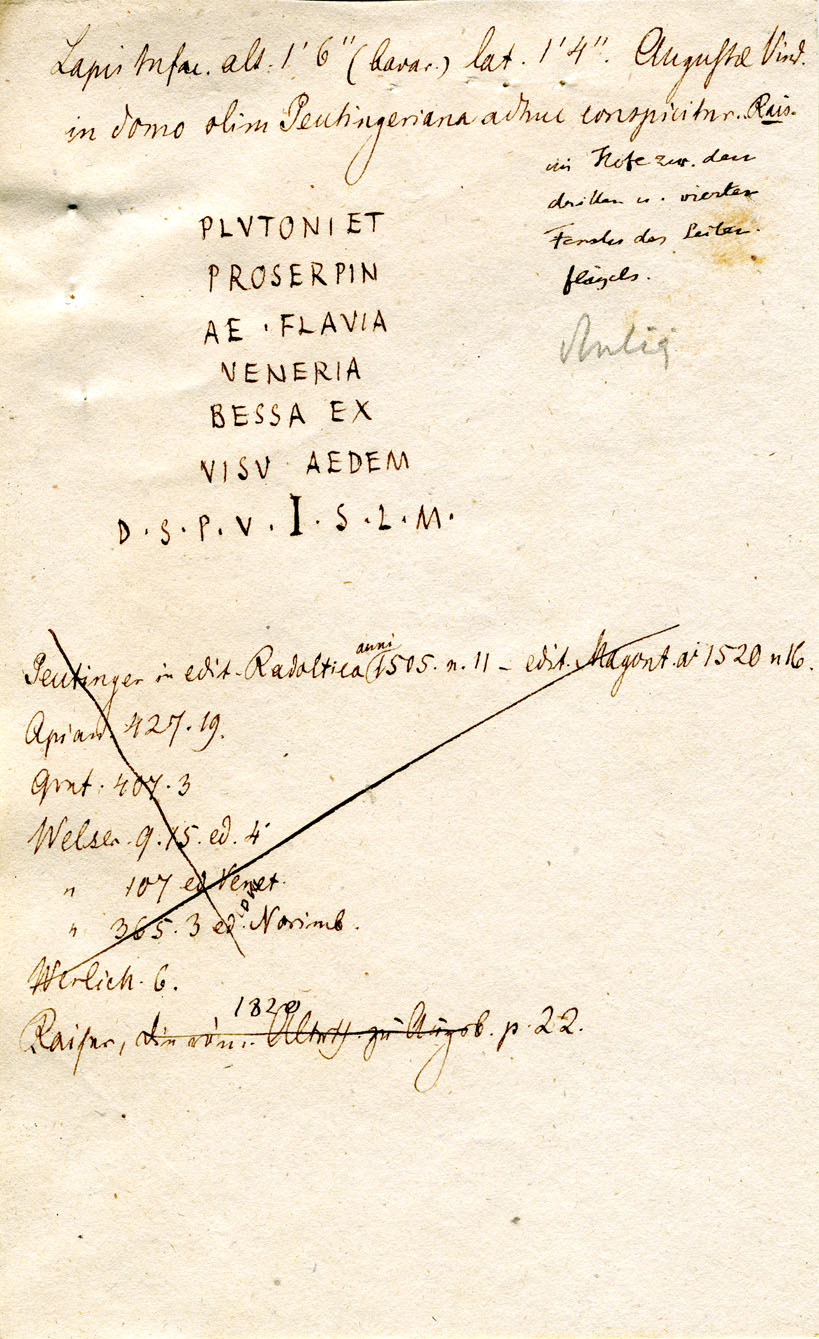 Lapis tufac. alt. 1' 6" (bavar.) lat. 1' 4". Augustæ Vind.
in domo olim Peutingeriana adhuc conspicitur. Rais.
im Hofe zw. dem
dritten u. vierten
Fenster des Seiten
flügels.
PLVTONI ET
PROSERPIN
AE · FLAVIA
VENERIA
BESSA EX
VISV AEDEM
D · S · P · V · I · S · L · M ·
Peutinger in edit. Radoltica anni 1505. n. 11 – edit. Magont. ai 1520 n 16.
Apian. 427. 19.
Grut. 407. 3
Welser. 9. 15. ed. 4
" 107 ed Venet.
" 365. 3 ed. Norimb.
Werlich. 6.
Raiser, die röm. Alterth. zu Augsb. 1820 p. 22.